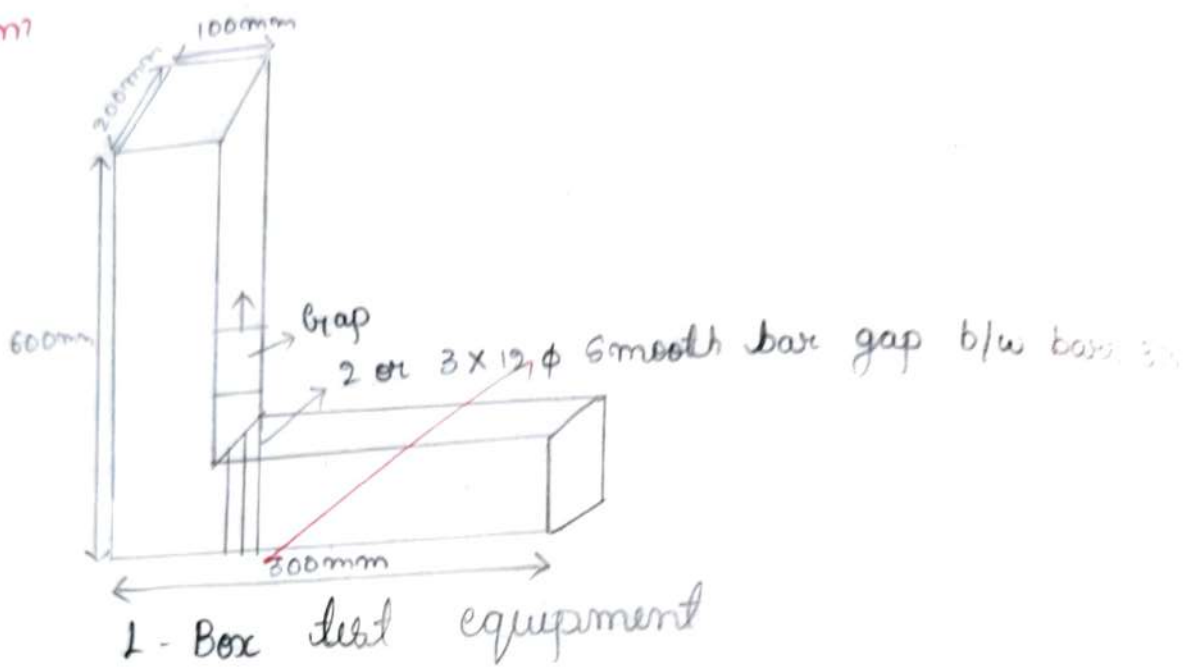 100mm
200mm
600mm
Gap
2 or 3 X 12 φ Smooth bar gap b/w bar
800mm
L - Box test equipment